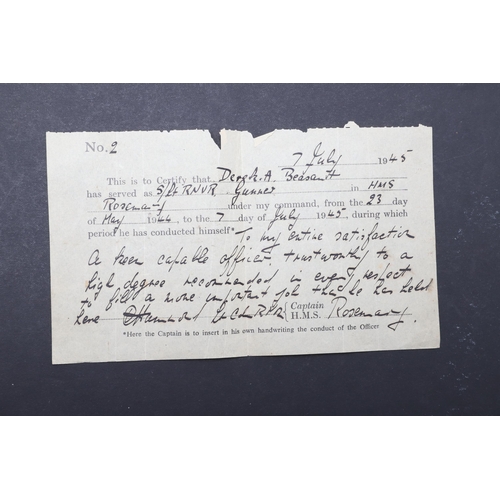 No. 2
7 July 1945
This is to Certify that Derek. A. Beasant
has served as S/Lt RNVR Gunner in HMS
Rosemary under my command, from the 23 day
of May 1944, to the 7 day of July 1945, during which
period he has conducted himself* To my entire satisfaction
A keen capable officer, trustworthy to a
high degree recommended in every respect
to fill a more important job than he has held
here Lt Captain
H.M.S. Rosemary.
*Here the Captain is to insert in his own handwriting the conduct of the Officer